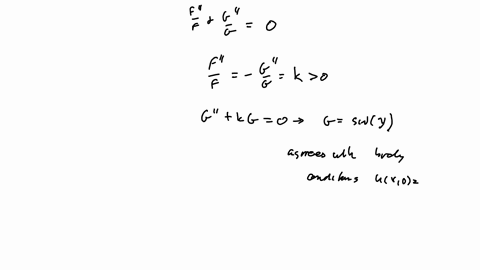 F''/F + G''/G = 0
F''/F = - G''/G = k > 0
G'' + kG = 0 → G = sin(y)
agrees with bndy
conditions u(x,0)=